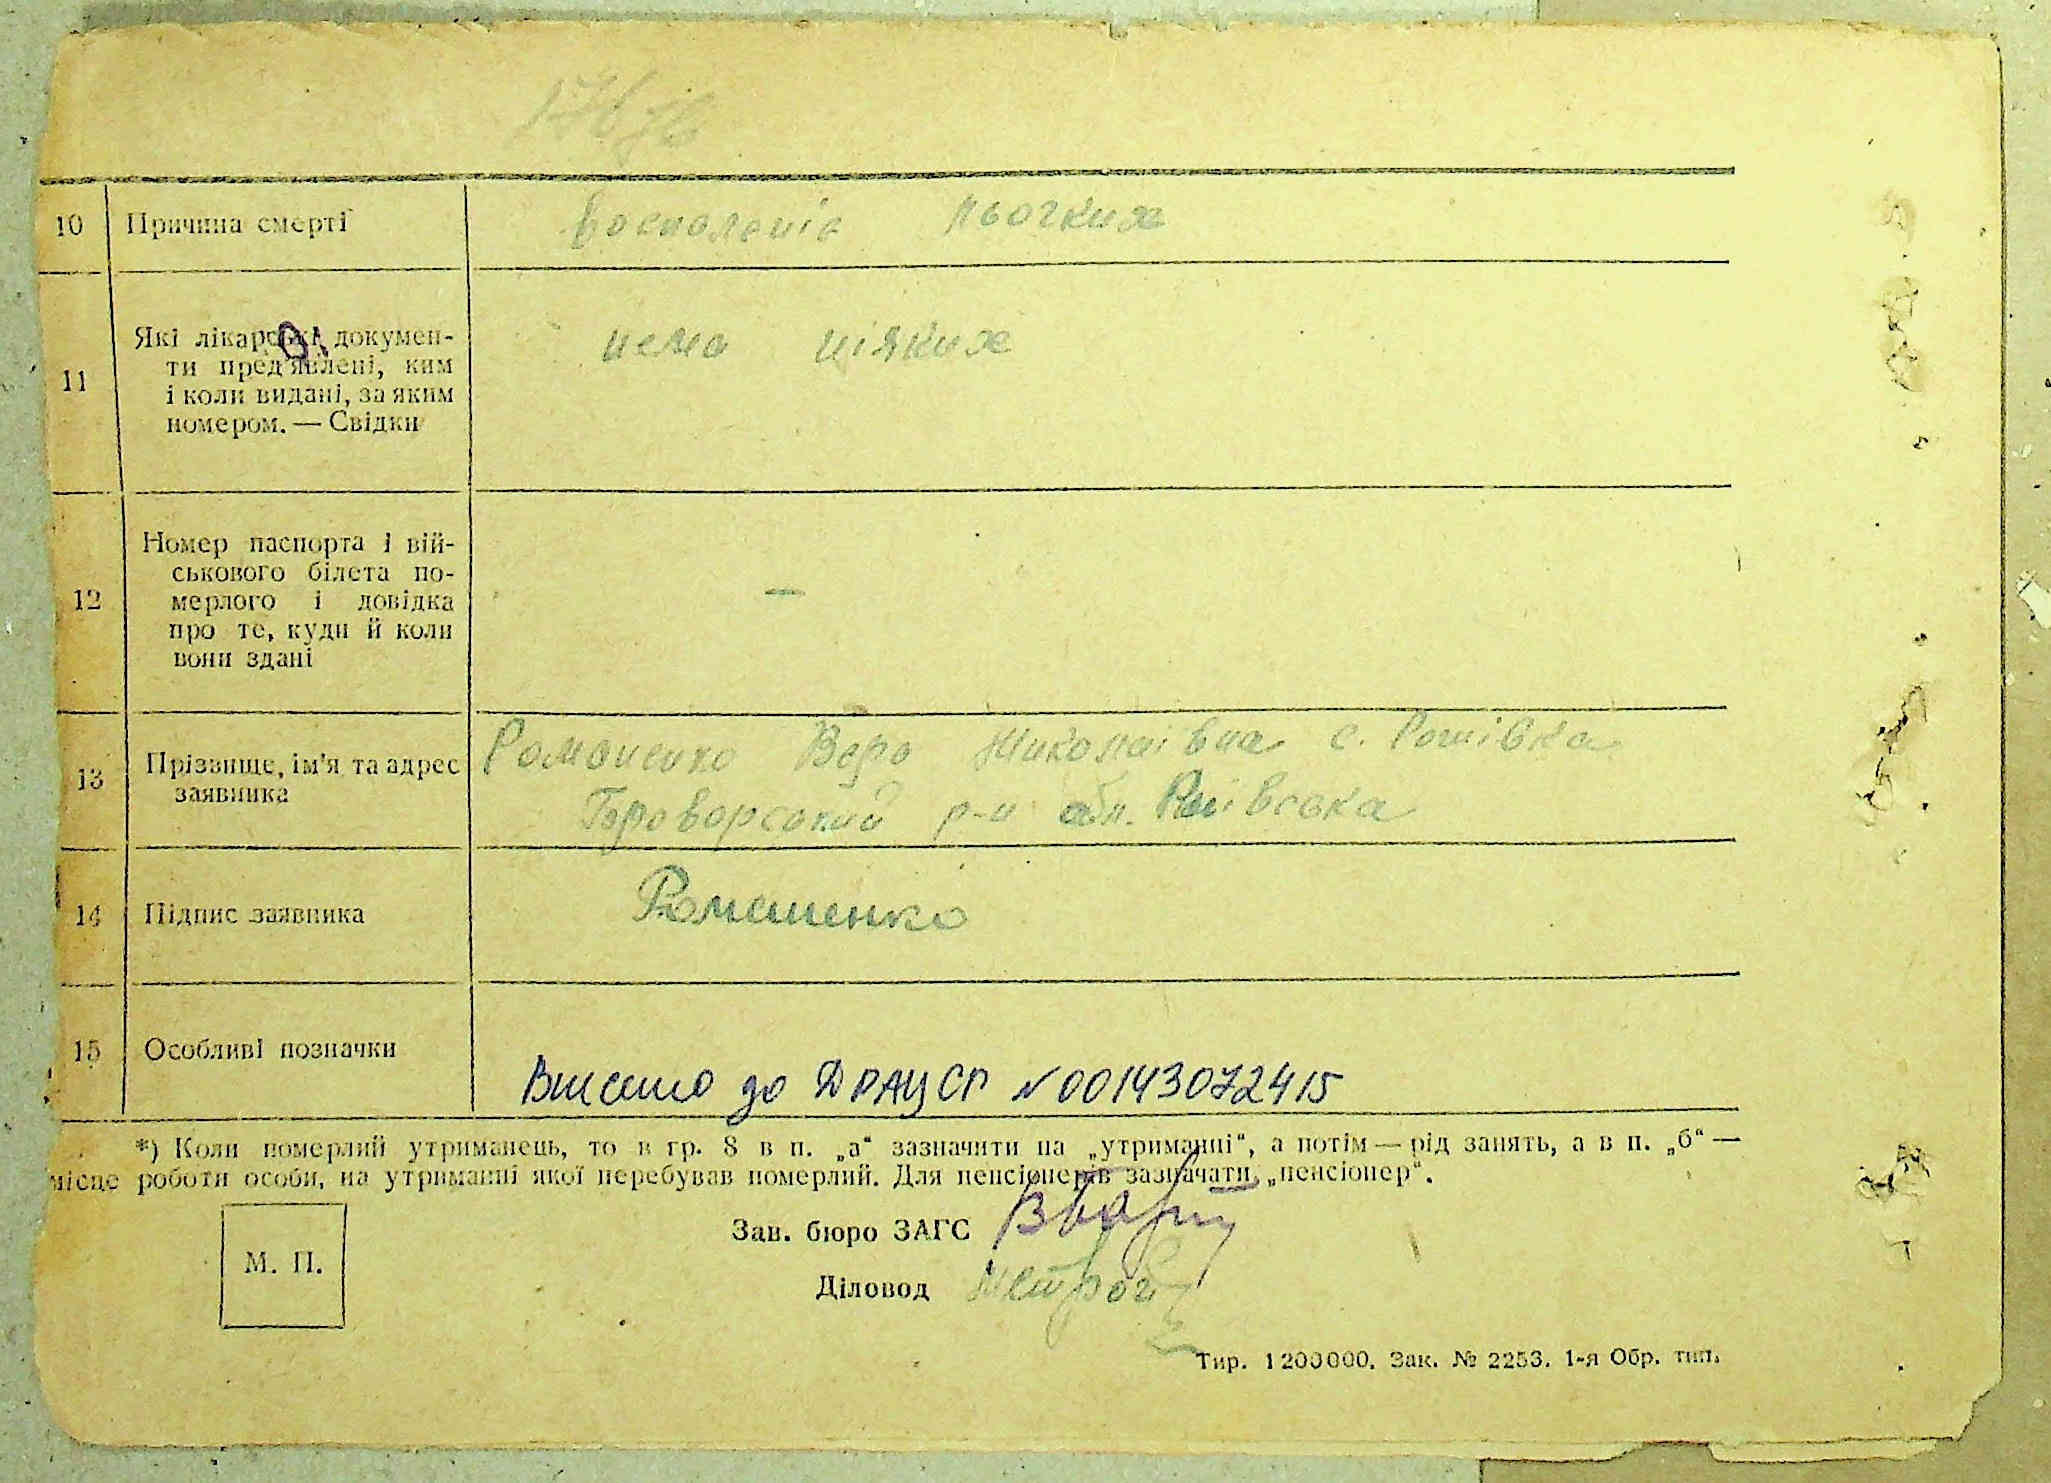 10 Причина смерті Воспаленіє льогких
11 Які лікарські докумен-
ти пред'явлені, ким
і коли видані, за яким
номером. — Свідки
нема ніяких
12 Номер паспорта і вій-
ськового білета по-
мерлого і довідка
про те, куди й коли
вони здані
—
13 Прізвище, ім'я та адрес
заявника
Романенко Вера Николаівна с. Рожівка
Броварський р-н обл. Київська
14 Підпис заявника Романенко
15 Особливі позначки
Внесено до ДРАЦСГ № 00143072415
*) Коли померлий утриманець, то в гр. 8 в п. „а“ зазначити на „утриманні“, а потім — рід занять, а в п. „б“ —
місце роботи особи, на утриманні якої перебував померлий. Для пенсіонерів зазначати „пенсіонер“.
Зав. бюро ЗАГС
М. П.
Діловод
Тир. 1200000. Зак. № 2253. 1-я Обр. тип.